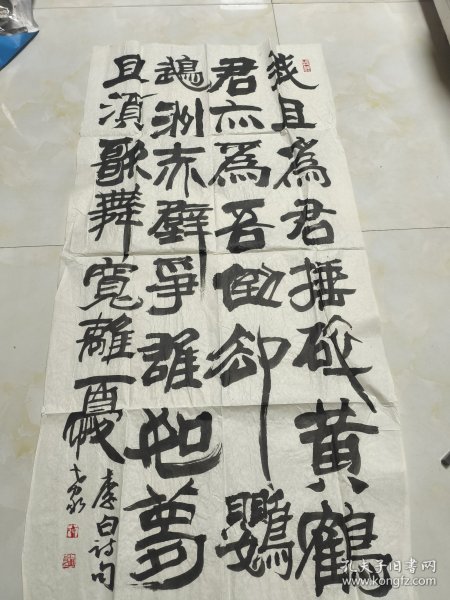 我且為君捶碎黄鶴
君亦為吾倒却鸚
鵡洲赤壁爭雄如夢
且須歌舞寬離憂
李白詩句
孔夫子旧书网
www.kongfz.com